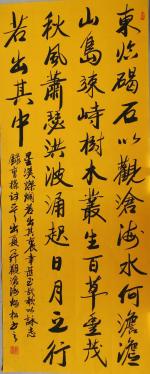 東臨碣石以觀滄海水何澹澹
山島竦峙樹木叢生百草豐茂
秋風蕭瑟洪波涌起日月之行
若出其中
星漢燦爛若出其裏幸甚至哉歌以詠志
錄曹操詩
觀滄海